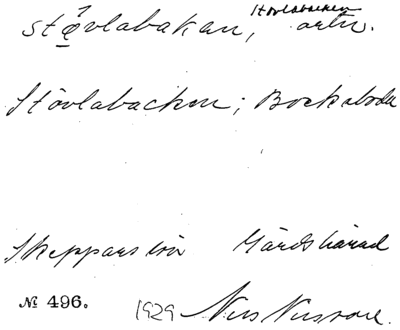 Stövlabacken
stövlabakan, ortn.
Stövlabacken; Bockaboda
Skepparslöv Gärds härad
№ 496. 1929 Nils Nilsson.